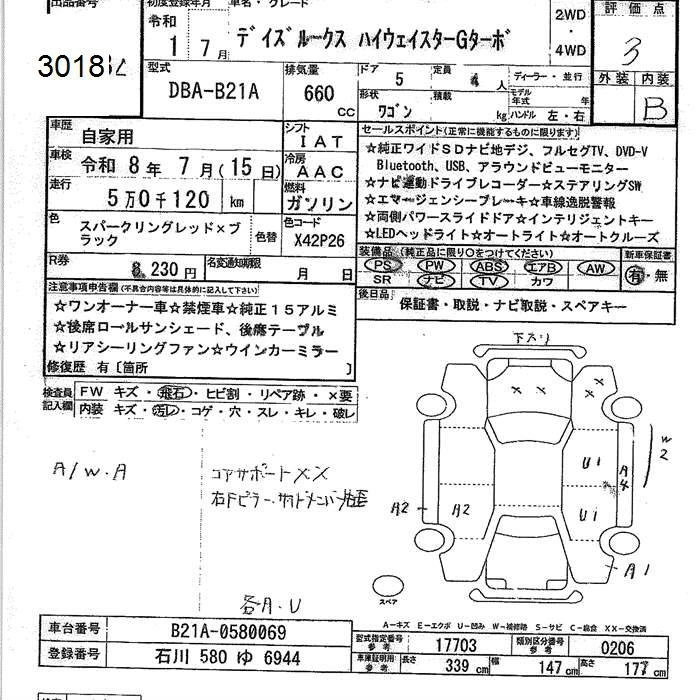 出品番号
初度登録年月
車名・グレード
評価点
30183L
令和 1年 7月
デイズルークス ハイウェイスターGターボ
2WD
・
4WD
3
型式
DBA-B21A
排気量
660 CC
ドア 5
定員 4人
ディーラー・並行
形状 ワゴン
積載 kg
モデル年式 年
ハンドル 左・右
外装 内装
B
車歴 自家用
シフト IAT
車検 令和 8年 7月(15日)
冷房 AAC
走行 5万0千120 km
燃料 ガソリン
色 スパークリングレッド×ブラック
色替
色コード X42P26
R券 8,230円
名変通知期限 月 日
セールスポイント(正常に機能するものに限ります)
☆純正ワイドSDナビ地デジ、フルセグTV、DVD-V
Bluetooth、USB、アラウンドビューモニター
☆ナビ連動ドライブレコーダー☆ステアリングSW
☆エマージェンシーブレーキ☆車線逸脱警報
☆両側パワースライドドア☆インテリジェントキー
☆LEDヘッドライト☆オートライト☆オートクルーズ
装備品(純正品に限り○をつけてください)
新車保証書
PS PW ABS エアB AW
SR ナビ TV カワ
有・無
後日品 保証書・取説・ナビ取説・スペアキー
注意事項申告欄(不具合内容等は具体的に記入して下さい)
☆ワンオーナー車☆禁煙車☆純正15アルミ
☆後席ロールサンシェード、後席テーブル
☆リアシーリングファン☆ウインカーミラー
修復歴 有〔箇所 〕
検査員記入欄
FW キズ・飛石・ヒビ割・リペア跡・×要
内装 キズ・汚レ・コゲ・穴・スレ・キレ・破レ
下スリ
A/W.A
コアサポートXX
W2
U1
A4
A2
A2
U1
A1
スペア
各A.U
A－キズ E－エクボ U－凹み W－補修跡 S－サビ C－腐食 XX－交換済
車台番号 B21A-0580069
型式指定番号 参考 17703
類別区分番号 参考 0206
登録番号 石川 580 ゆ 6944
車庫証明用 参考 長さ 339cm 幅 147cm 高さ 177cm